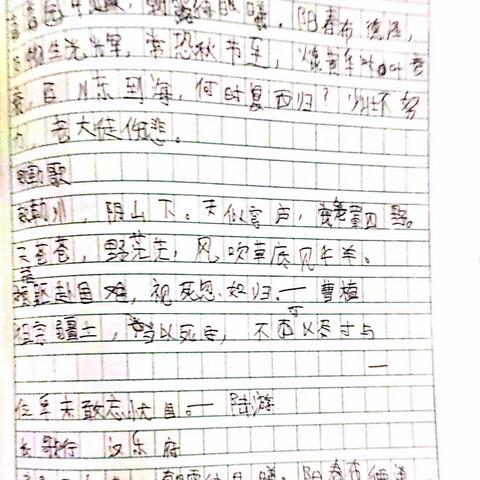 青青园中葵,朝露待日晞,阳春布德泽,
万物生光辉,常恐秋节至,焜黄华叶
衰,百川东到海,何时复西归?少壮不努
力,老大徒伤悲。
敕勒歌
敕勒川,阴山下。天似穹庐,笼盖四野。
天苍苍,野茫茫,风吹草底见牛羊。
捐躯赴国难,视死忽如归。—曹植
祖宗疆土,当以死守,不可以尺寸与
—
位卑未敢忘忧国。—陆游
长歌行 汉乐府
朝露待日晞,阳春布德泽,